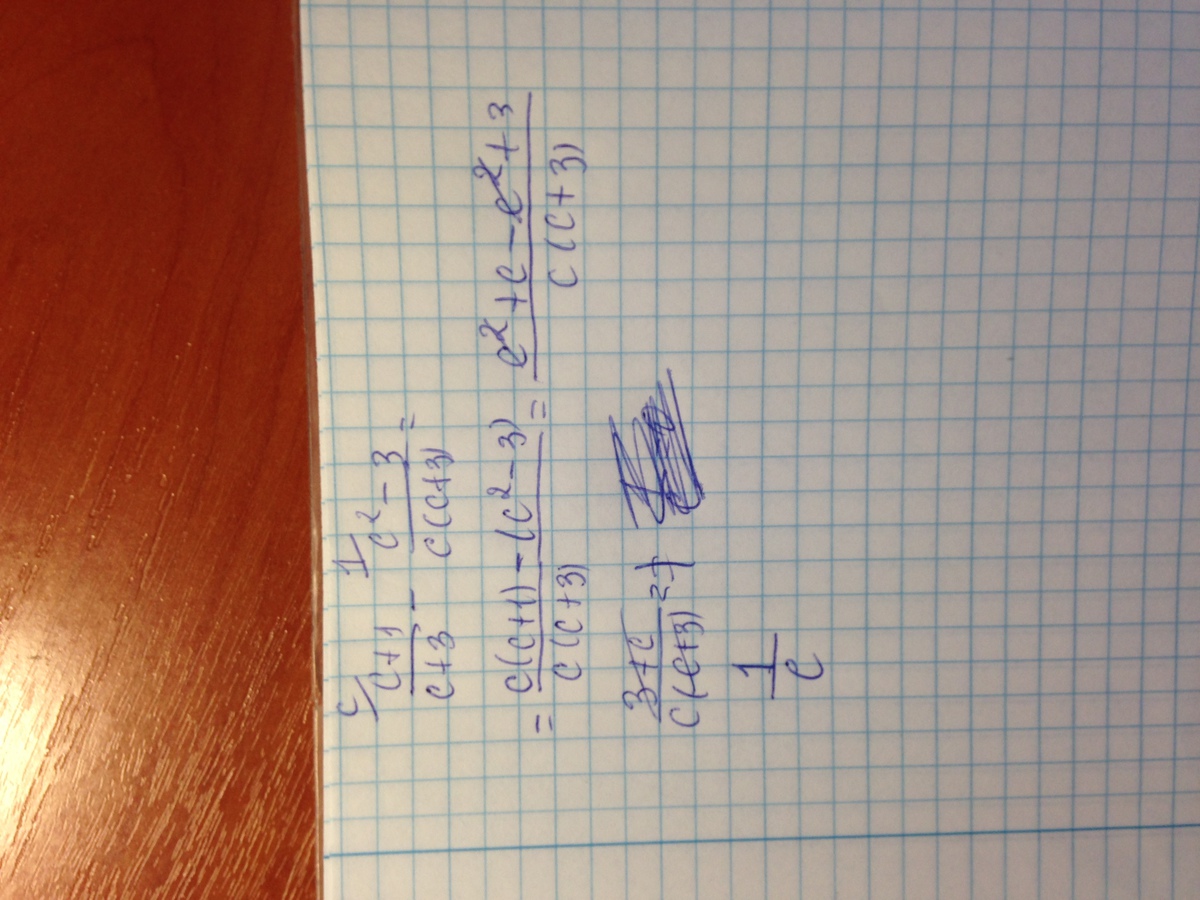 c/ (c+1)/(c+3) - 1/ (c²-3)/(c(c+3)) =
= (c(c+1)-(c²-3))/(c(c+3)) = (c²+c-c²+3)/(c(c+3))
(3+c)/(c(c+3)) =
1/c